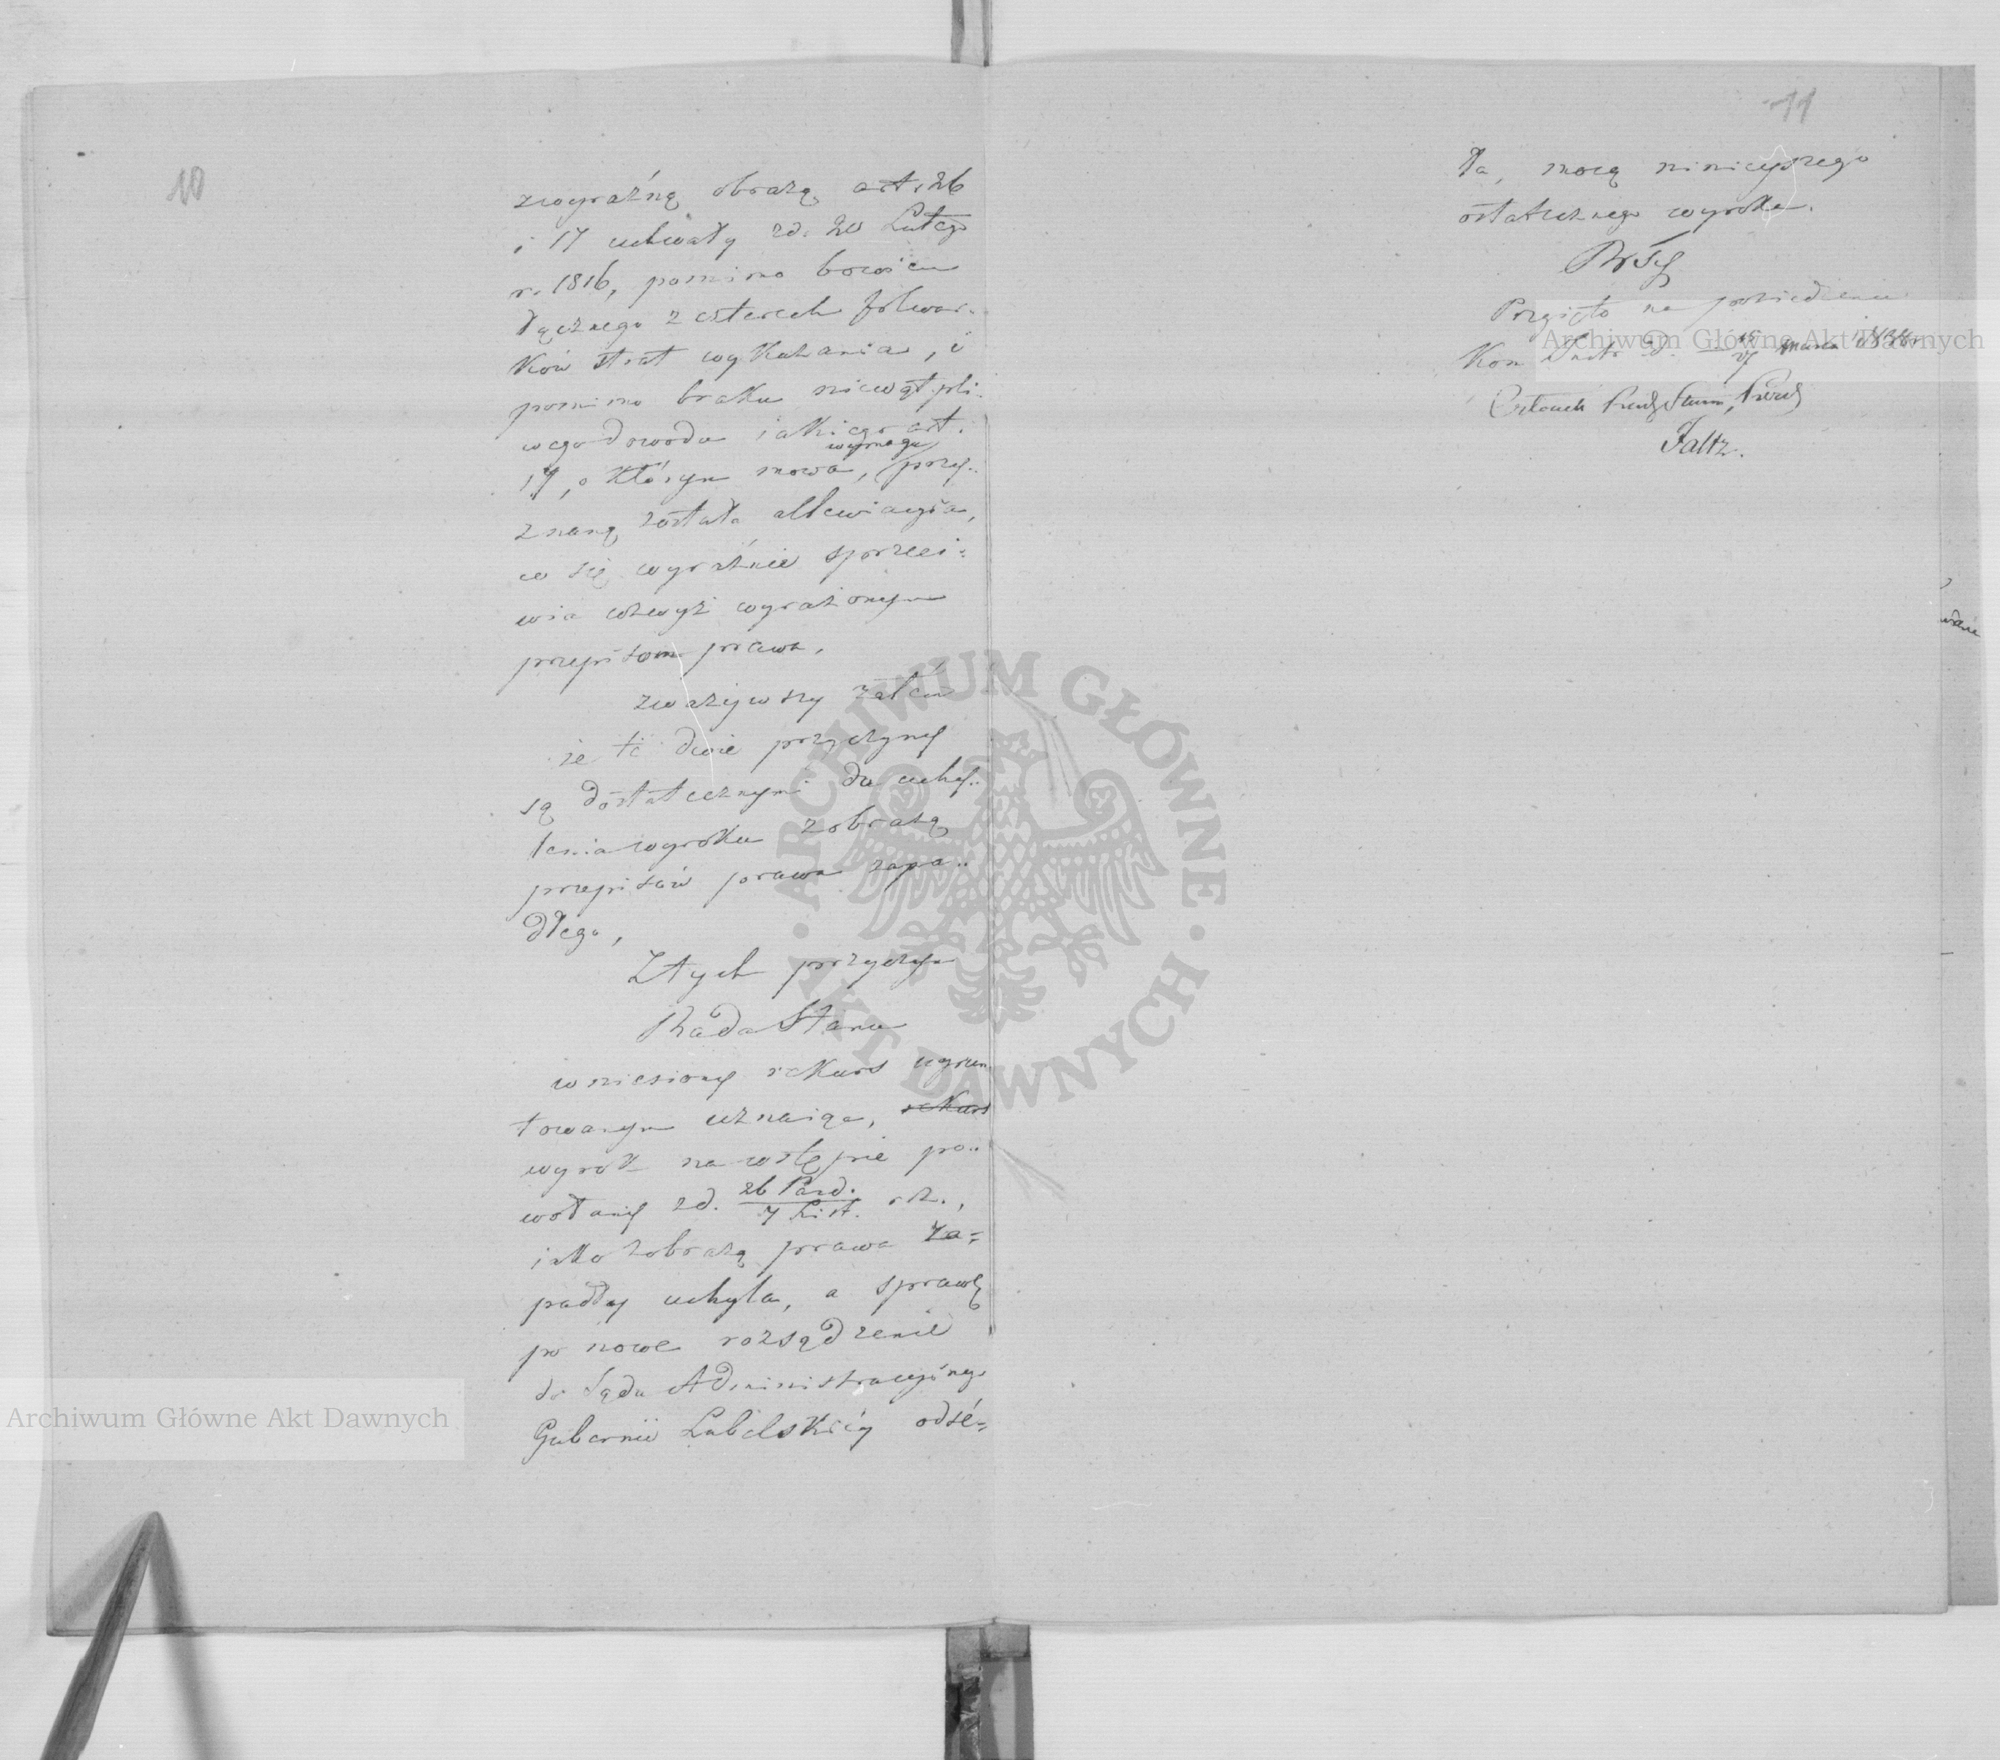 10
z wyraźną obrazą art. 26
i 17 uchwały z d. 20 Lutego
r. 1816, pomimo bowiem
łącznego z czterech folwar-
ków strat wykazania, i
pomimo braku niewątpli-
wego dowodu jakiego art.
wymaga
17, o którym mowa, przy-
znaną została allewiacyia,
co się wyraźnie sprzeci-
wia wzwyż wyrażonym
przepisom prawa,
zważywszy zatem
że te dwie przyczyny
są dostatecznymi do uchy-
lenia wyroku z obrazą
przepisów prawa zapa-
dłego,
Z tych przyczyn
Rada Stanu
wniesiony rekurs ugrun
towanym uznaiąc, rekurs
wyrok na wstępie po-
wołany z d. 26 Pazd. / 7 List. r. z.,
iako z obrazą prawa za-
padły uchyla, a sprawę
po nowe rozsądzenie
do Sądu Administracyinego
Gubernii Lubelskiéy odsé-
11
ła, mocą ninieyszego
ostatecznego wyroku.
Przyięto na posiedzeniu
Kom. Instr. d. Marca
Członek
Faltz.
Archiwum Główne Akt Dawnych
Archiwum Główne Akt Dawnych
ARCHIWUM GŁÓWNE
AKT DAWNYCH